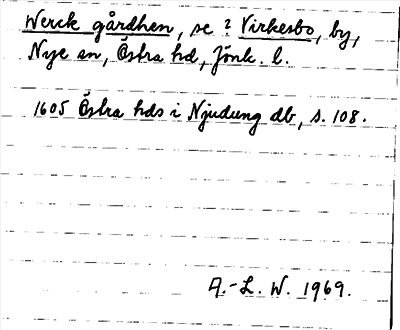 Werck gårdhen, se ? Virkesbo, by,
Nye sn, Östra hd, Jönk. l.
1605 Östra hds i Njudung db, s. 108.
A.-L. W. 1969.